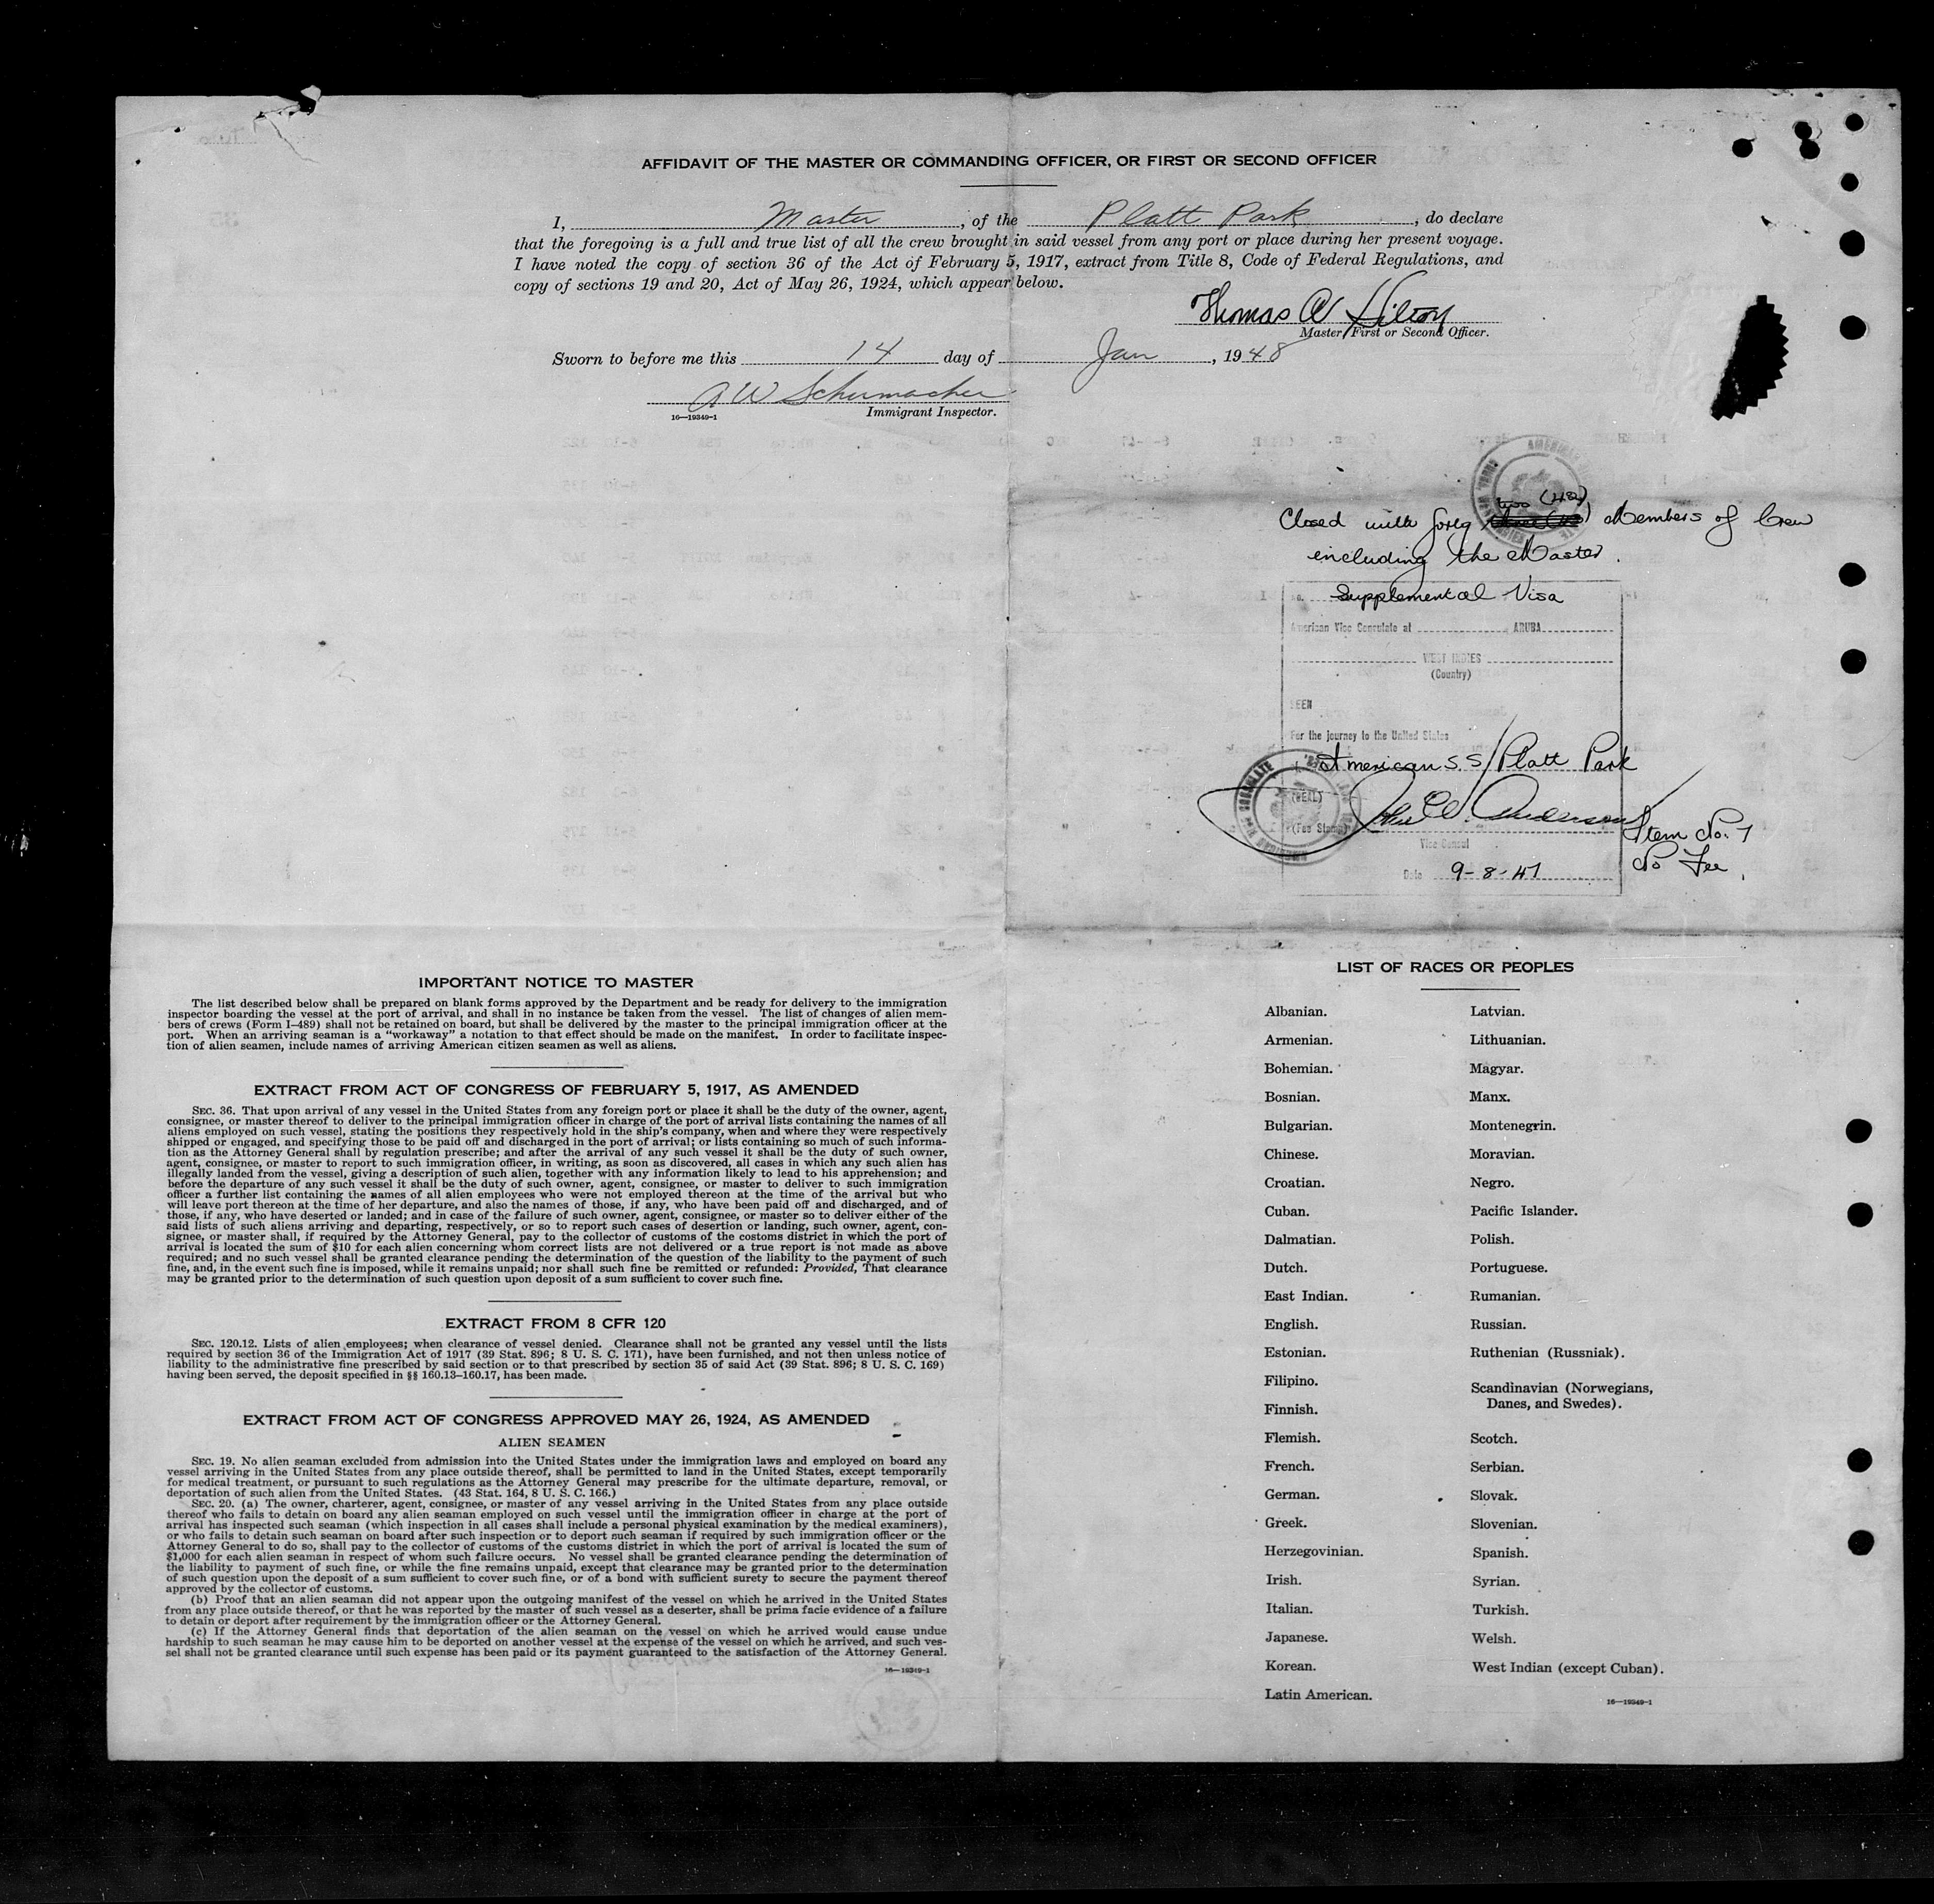 AFFIDAVIT OF THE MASTER OR COMMANDING OFFICER, OR FIRST OR SECOND OFFICER
I, Master, of the Platt Park, do declare
that the foregoing is a full and true list of all the crew brought in said vessel from any port or place during her present voyage.
I have noted the copy of section 36 of the Act of February 5, 1917, extract from Title 8, Code of Federal Regulations, and
copy of sections 19 and 20, Act of May 26, 1924, which appear below.
Thomas W Hilton
Master, First or Second Officer.
Sworn to before me this 14 day of Jan, 1948
A W Schumacher
16—19349-1 Immigrant Inspector.
two (42)
Closed with forty Members of Crew
including the Master.
Supplemental Visa
American Vice Consulate at ARUBA
WEST INDIES
(Country)
SEEN
For the journey to the United States
American S.S/Platt Park
(SEAL)
John W. Anderson
(Fee Stamp)
Item No. 7
Vice Consul
No Fee
Date 9-8-47
IMPORTANT NOTICE TO MASTER
The list described below shall be prepared on blank forms approved by the Department and be ready for delivery to the immigration
inspector boarding the vessel at the port of arrival, and shall in no instance be taken from the vessel. The list of changes of alien mem-
bers of crews (Form I-489) shall not be retained on board, but shall be delivered by the master to the principal immigration officer at the
port. When an arriving seaman is a "workaway" a notation to that effect should be made on the manifest. In order to facilitate inspec-
tion of alien seamen, include names of arriving American citizen seamen as well as aliens.
EXTRACT FROM ACT OF CONGRESS OF FEBRUARY 5, 1917, AS AMENDED
SEC. 36. That upon arrival of any vessel in the United States from any foreign port or place it shall be the duty of the owner, agent,
consignee, or master thereof to deliver to the principal immigration officer in charge of the port of arrival lists containing the names of all
aliens employed on such vessel, stating the positions they respectively hold in the ship's company, when and where they were respectively
shipped or engaged, and specifying those to be paid off and discharged in the port of arrival; or lists containing so much of such informa-
tion as the Attorney General shall by regulation prescribe; and after the arrival of any such vessel it shall be the duty of such owner,
agent, consignee, or master to report to such immigration officer, in writing, as soon as discovered, all cases in which any such alien has
illegally landed from the vessel, giving a description of such alien, together with any information likely to lead to his apprehension; and
before the departure of any such vessel it shall be the duty of such owner, agent, consignee, or master to deliver to such immigration
officer a further list containing the names of all alien employees who were not employed thereon at the time of the arrival but who
will leave port thereon at the time of her departure, and also the names of those, if any, who have been paid off and discharged, and of
those, if any, who have deserted or landed; and in case of the failure of such owner, agent, consignee, or master so to deliver either of the
said lists of such aliens arriving and departing, respectively, or so to report such cases of desertion or landing, such owner, agent, con-
signee, or master shall, if required by the Attorney General, pay to the collector of customs of the costoms district in which the port of
arrival is located the sum of $10 for each alien concerning whom correct lists are not delivered or a true report is not made as above
required; and no such vessel shall be granted clearance pending the determination of the question of the liability to the payment of such
fine, and, in the event such fine is imposed, while it remains unpaid; nor shall such fine be remitted or refunded: Provided, That clearance
may be granted prior to the determination of such question upon deposit of a sum sufficient to cover such fine.
EXTRACT FROM 8 CFR 120
SEC. 120.12. Lists of alien employees; when clearance of vessel denied. Clearance shall not be granted any vessel until the lists
required by section 36 of the Immigration Act of 1917 (39 Stat. 896; 8 U. S. C. 171), have been furnished, and not then unless notice of
liability to the administrative fine prescribed by said section or to that prescribed by section 35 of said Act (39 Stat. 896; 8 U. S. C. 169)
having been served, the deposit specified in §§ 160.13–160.17, has been made.
EXTRACT FROM ACT OF CONGRESS APPROVED MAY 26, 1924, AS AMENDED
ALIEN SEAMEN
SEC. 19. No alien seaman excluded from admission into the United States under the immigration laws and employed on board any
vessel arriving in the United States from any place outside thereof, shall be permitted to land in the United States, except temporarily
for medical treatment, or pursuant to such regulations as the Attorney General may prescribe for the ultimate departure, removal, or
deportation of such alien from the United States. (43 Stat. 164, 8 U. S. C. 166.)
SEC. 20. (a) The owner, charterer, agent, consignee, or master of any vessel arriving in the United States from any place outside
thereof who fails to detain on board any alien seaman employed on such vessel until the immigration officer in charge at the port of
arrival has inspected such seaman (which inspection in all cases shall include a personal physical examination by the medical examiners),
or who fails to detain such seaman on board after such inspection or to deport such seaman if required by such immigration officer or the
Attorney General to do so, shall pay to the collector of customs of the customs district in which the port of arrival is located the sum of
$1,000 for each alien seaman in respect of whom such failure occurs. No vessel shall be granted clearance pending the determination of
the liability to payment of such fine, or while the fine remains unpaid, except that clearance may be granted prior to the determination
of such question upon the deposit of a sum sufficient to cover such fine, or of a bond with sufficient surety to secure the payment thereof
approved by the collector of customs.
(b) Proof that an alien seaman did not appear upon the outgoing manifest of the vessel on which he arrived in the United States
from any place outside thereof, or that he was reported by the master of such vessel as a deserter, shall be prima facie evidence of a failure
to detain or deport after requirement by the immigration officer or the Attorney General.
(c) If the Attorney General finds that deportation of the alien seaman on the vessel on which he arrived would cause undue
hardship to such seaman he may cause him to be deported on another vessel at the expense of the vessel on which he arrived, and such ves-
sel shall not be granted clearance until such expense has been paid or its payment guaranteed to the satisfaction of the Attorney General.
16—19349-1
LIST OF RACES OR PEOPLES
Albanian.
Armenian.
Bohemian.
Bosnian.
Bulgarian.
Chinese.
Croatian.
Cuban.
Dalmatian.
Dutch.
East Indian.
English.
Estonian.
Filipino.
Finnish.
Flemish.
French.
German.
Greek.
Herzegovinian.
Irish.
Italian.
Japanese.
Korean.
Latin American.
Latvian.
Lithuanian.
Magyar.
Manx.
Montenegrin.
Moravian.
Negro.
Pacific Islander.
Polish.
Portuguese.
Rumanian.
Russian.
Ruthenian (Russniak).
Scandinavian (Norwegians,
Danes, and Swedes).
Scotch.
Serbian.
Slovak.
Slovenian.
Spanish.
Syrian.
Turkish.
Welsh.
West Indian (except Cuban).
16—19349-1